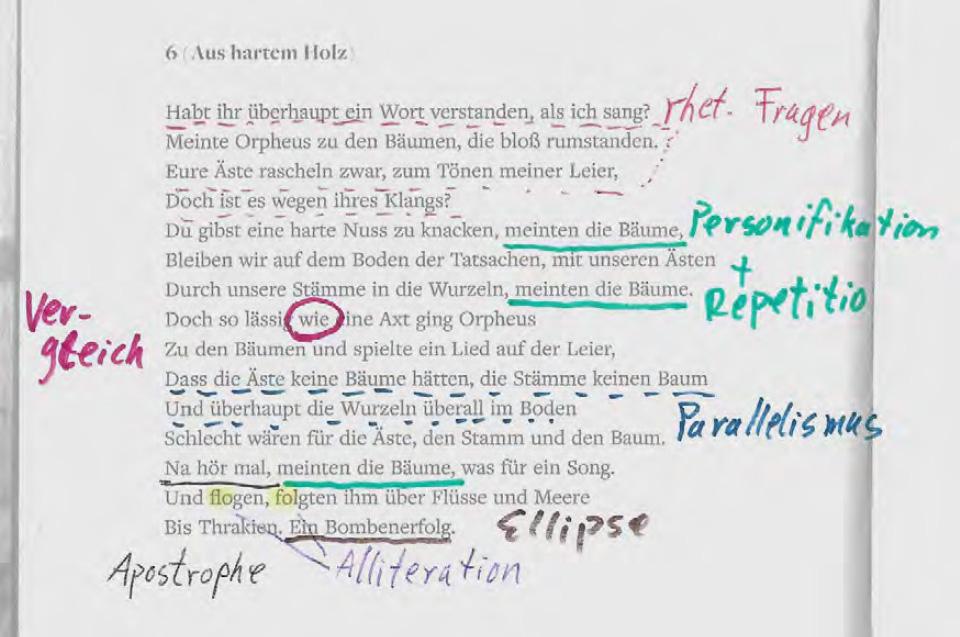 6 (Aus hartem Holz)
Habt ihr überhaupt ein Wort verstanden, als ich sang? rhet. Fragen
Meinte Orpheus zu den Bäumen, die bloß rumstanden.
Eure Äste rascheln zwar, zum Tönen meiner Leier,
Doch ist es wegen ihres Klangs?
Du gibst eine harte Nuss zu knacken, meinten die Bäume, Personifikation
Bleiben wir auf dem Boden der Tatsachen, mit unseren Ästen +
Durch unsere Stämme in die Wurzeln, meinten die Bäume. Repetitio
Ver-
gleich
Doch so lässig wie eine Axt ging Orpheus
Zu den Bäumen und spielte ein Lied auf der Leier,
Dass die Äste keine Bäume hätten, die Stämme keinen Baum
Und überhaupt die Wurzeln überall im Boden Parallelismus
Schlecht wären für die Äste, den Stamm und den Baum.
Na hör mal, meinten die Bäume, was für ein Song.
Und flogen, folgten ihm über Flüsse und Meere
Bis Thrakien. Ein Bombenerfolg. Ellipse
Apostrophe Alliteration